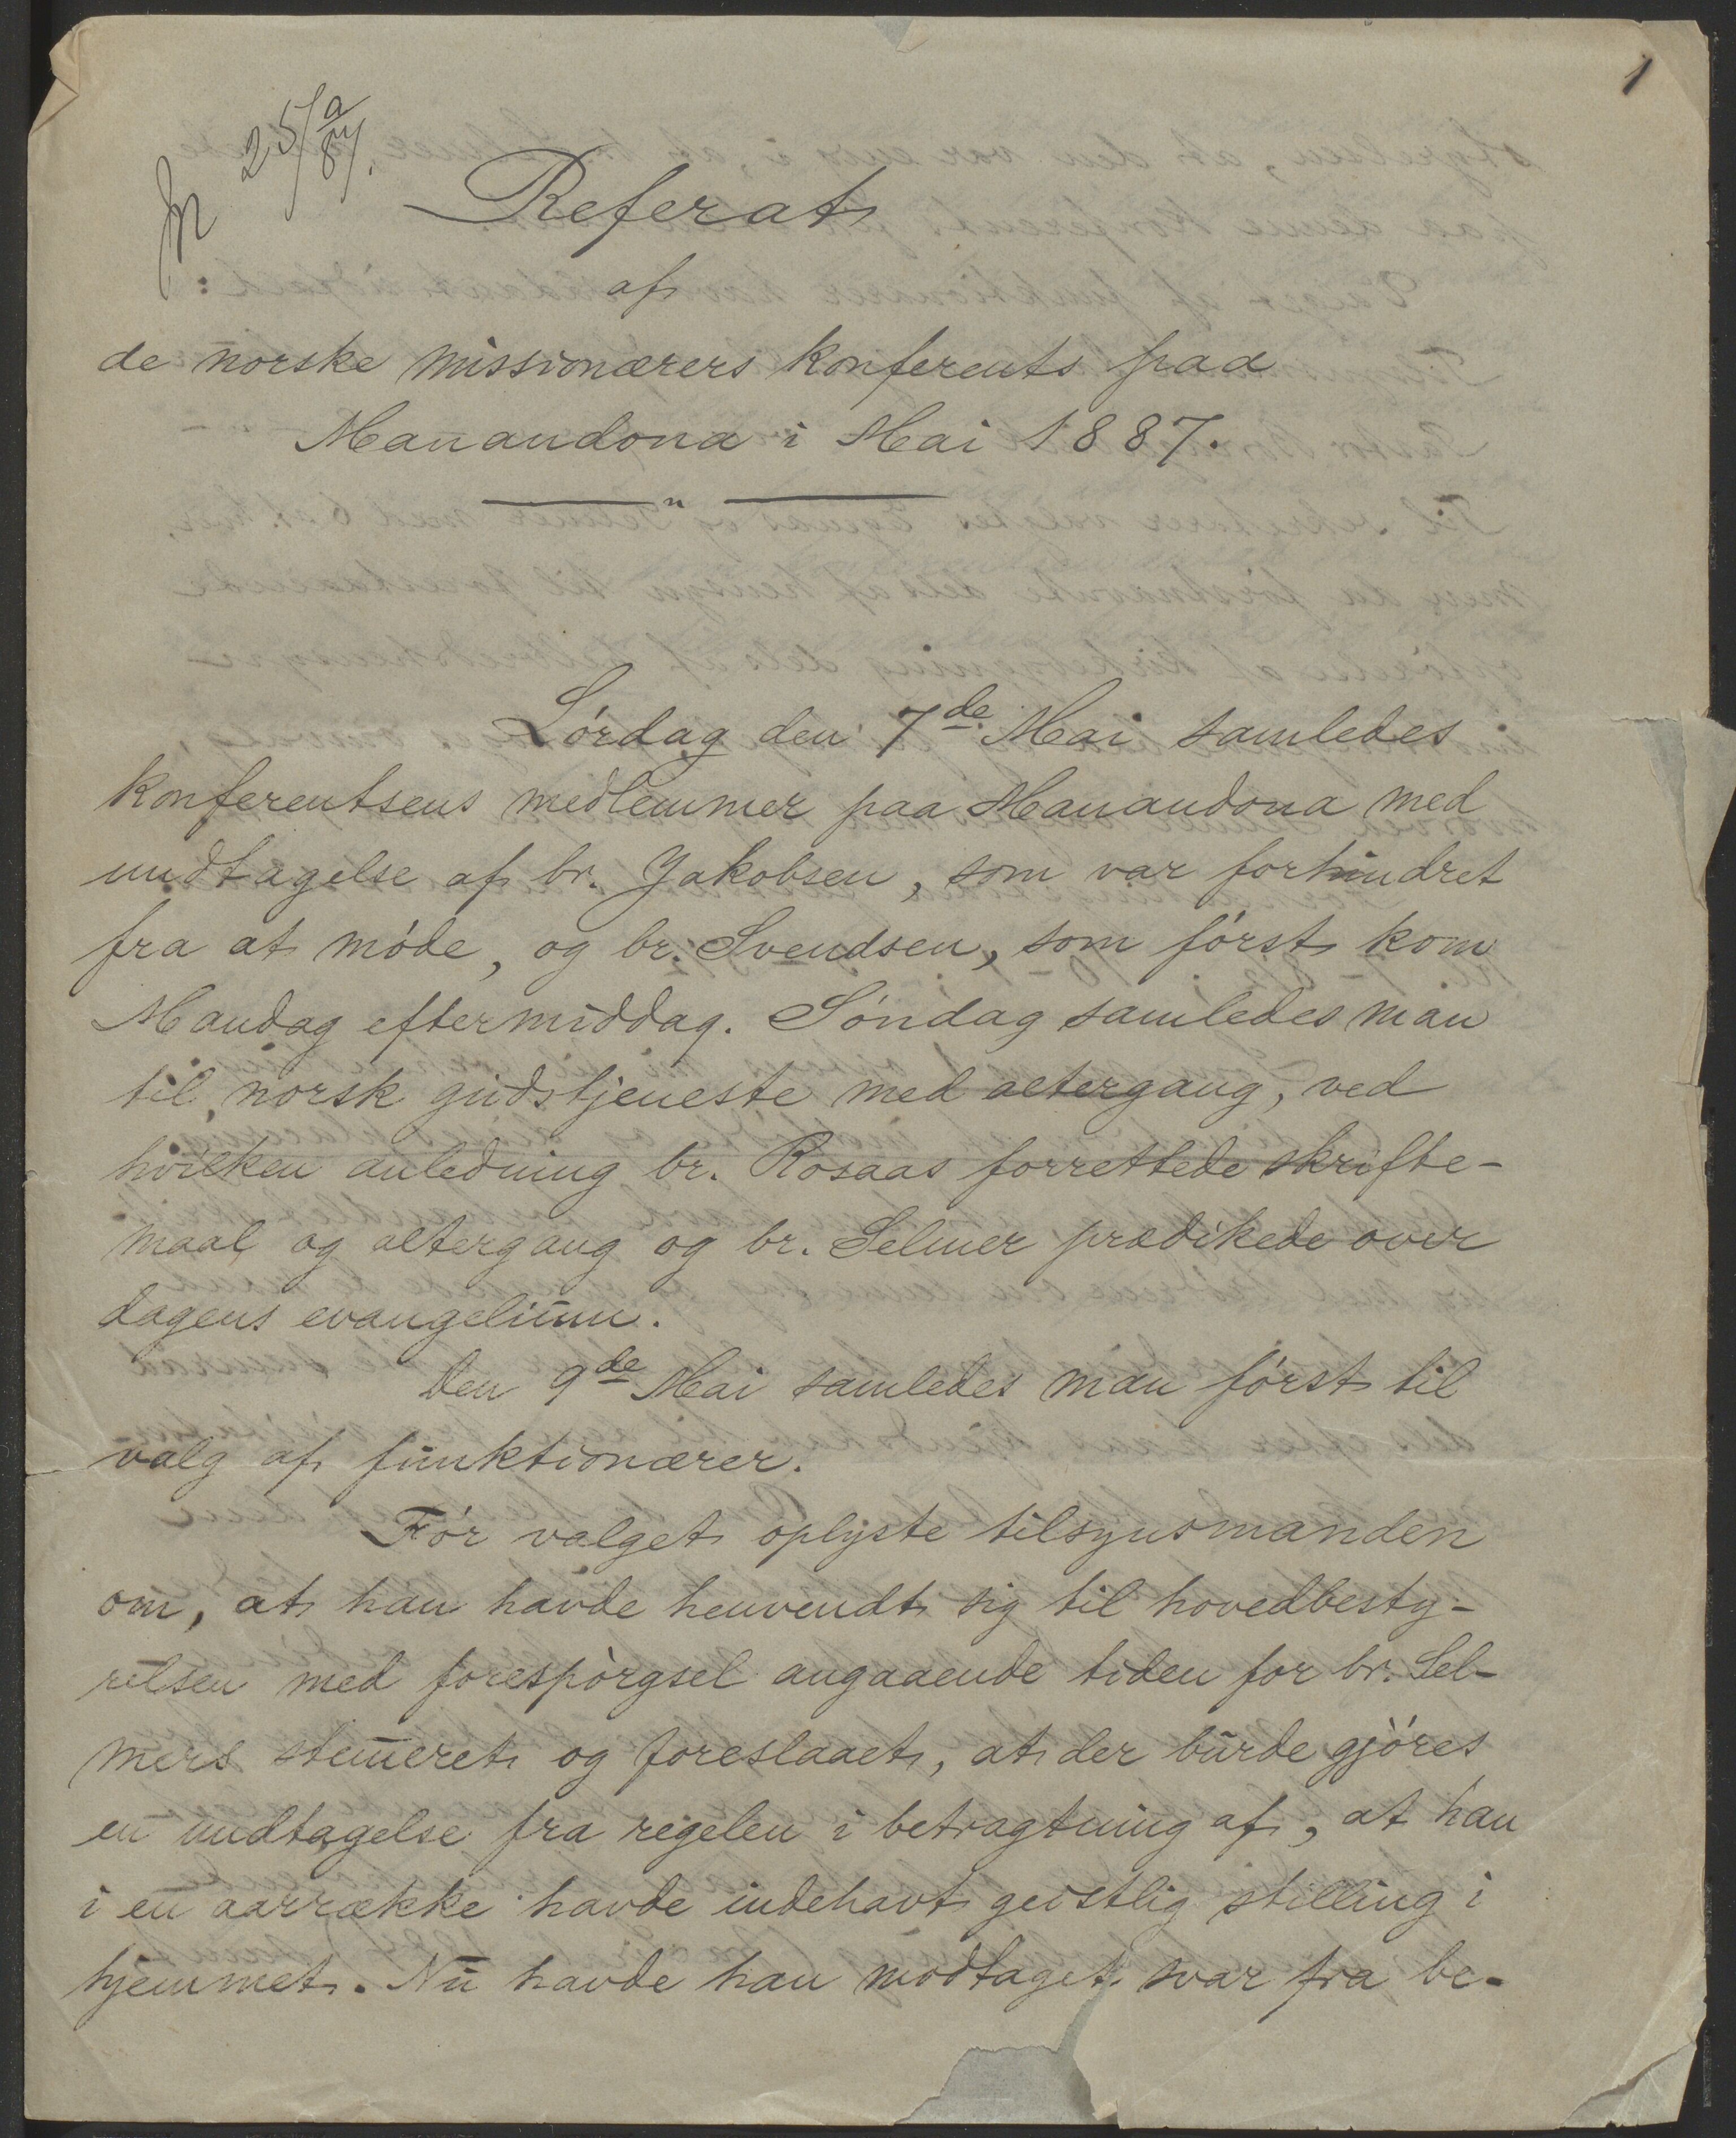 1
25/9 87.
Referat
af
de norske missionærers konferents paa
Manandona i Mai 1887.
Lørdag den 7de Mai samledes
konferentsens medlemmer paa Manandona med
undtagelse af br. Jakobsen, som var forhindret
fra at møde, og br. Svendsen, som først kom
Mandag eftermiddag. Søndag samledes man
til norsk gudstjeneste med altergang, ved
hvilken anledning br. Rosaas forrettede skrifte-
maal og altergang og br. Selmer prædikede over
dagens evangelium.
Den 9de Mai samledes man først til
valg af funktionærer.
Før valget oplyste tilsynsmanden
om, at han havde henvendt sig til hovedbesty-
relsen med forespørgsel angaaende tiden for br. Sel-
mers stemeret og foreslaaet, at der burde gjøres
en undtagelse fra regelen i betragtning af, at han
i en aarrække havde indehavt geistlig stilling i
hjemmet. Nu havde han modtaget svar fra be-